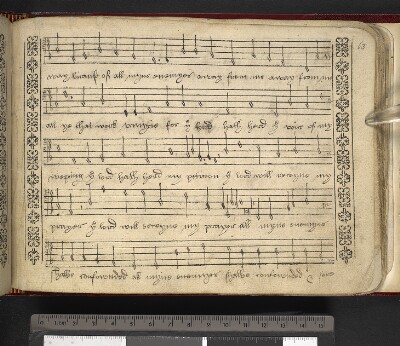 away because of all myne enemyes away from me away from me
all ye that work vanytie for ye lord hath herd ye voice of my
weping ye lord hath herd my peticion ye lord will receyve my
prayer ye lord will receyve my prayer all myne enemyes
shalbe confounded all myne enemyes shalbe confounded & sore
63